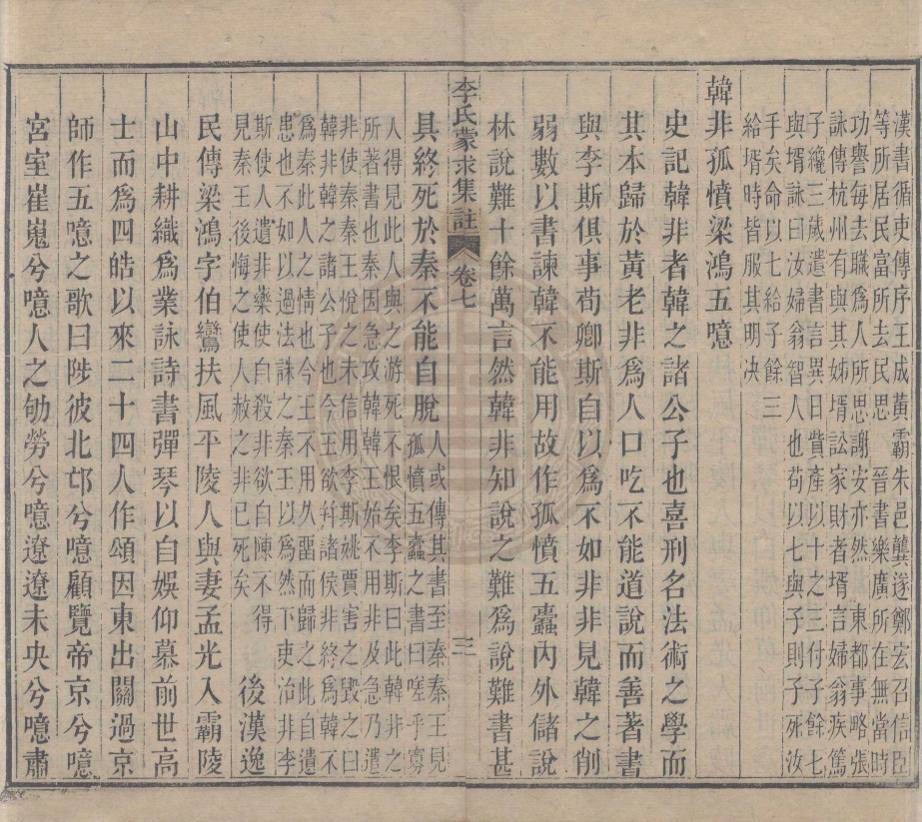 漢書循吏傳序王成黃霸朱邑龔遂鄭宏召信臣
等所居民富所去民思　晉書樂廣所在無當時
功譽每去職爲人所思謝安亦然　東都事略張
詠傳杭州有與其姊壻訟家財者壻言婦翁疾篤
子纔三歲遺書言異日貲產以十之三付子餘七
與壻詠曰汝婦翁智人也苟以七與子則子死汝
手矣命以七給子餘三
給壻時皆服其明决
韓非孤憤梁鴻五噫
史記韓非者韓之諸公子也喜刑名法術之學而
其本歸於黃老非爲人口吃不能道說而善著書
與李斯俱事荀卿斯自以爲不如非非見韓之削
弱數以書諫韓不能用故作孤憤五蠹內外儲說
林說難十餘萬言然韓非知說之難爲說難書甚
李氏蒙求集註　卷七　三
具終死於秦不能自脫
人或傳其書至秦秦王見
孤憤五蠹之書曰嗟乎寡
人得見此人與之游死不恨矣李斯曰此韓非之
所著書也秦因急攻韓韓王始不用非及急乃遣
非使秦秦王悅之未信用李斯姚賈害之毀之曰
韓非韓之諸公子也今王欲幷諸侯非終爲韓不
爲秦此人之情也今王不用久畱而歸之此自遺
患也不如以過法誅之秦王以爲然下吏治非李
斯使人遺非藥使自殺非欲自陳不得
見秦王後悔之使人赦之非已死矣
後漢逸
民傳梁鴻字伯鸞扶風平陵人與妻孟光入霸陵
山中耕織爲業詠詩書彈琴以自娛仰慕前世高
士而爲四皓以來二十四人作頌因東出關過京
師作五噫之歌曰陟彼北邙兮噫顧覽帝京兮噫
宮室崔嵬兮噫人之劬勞兮噫遼遼未央兮噫肅